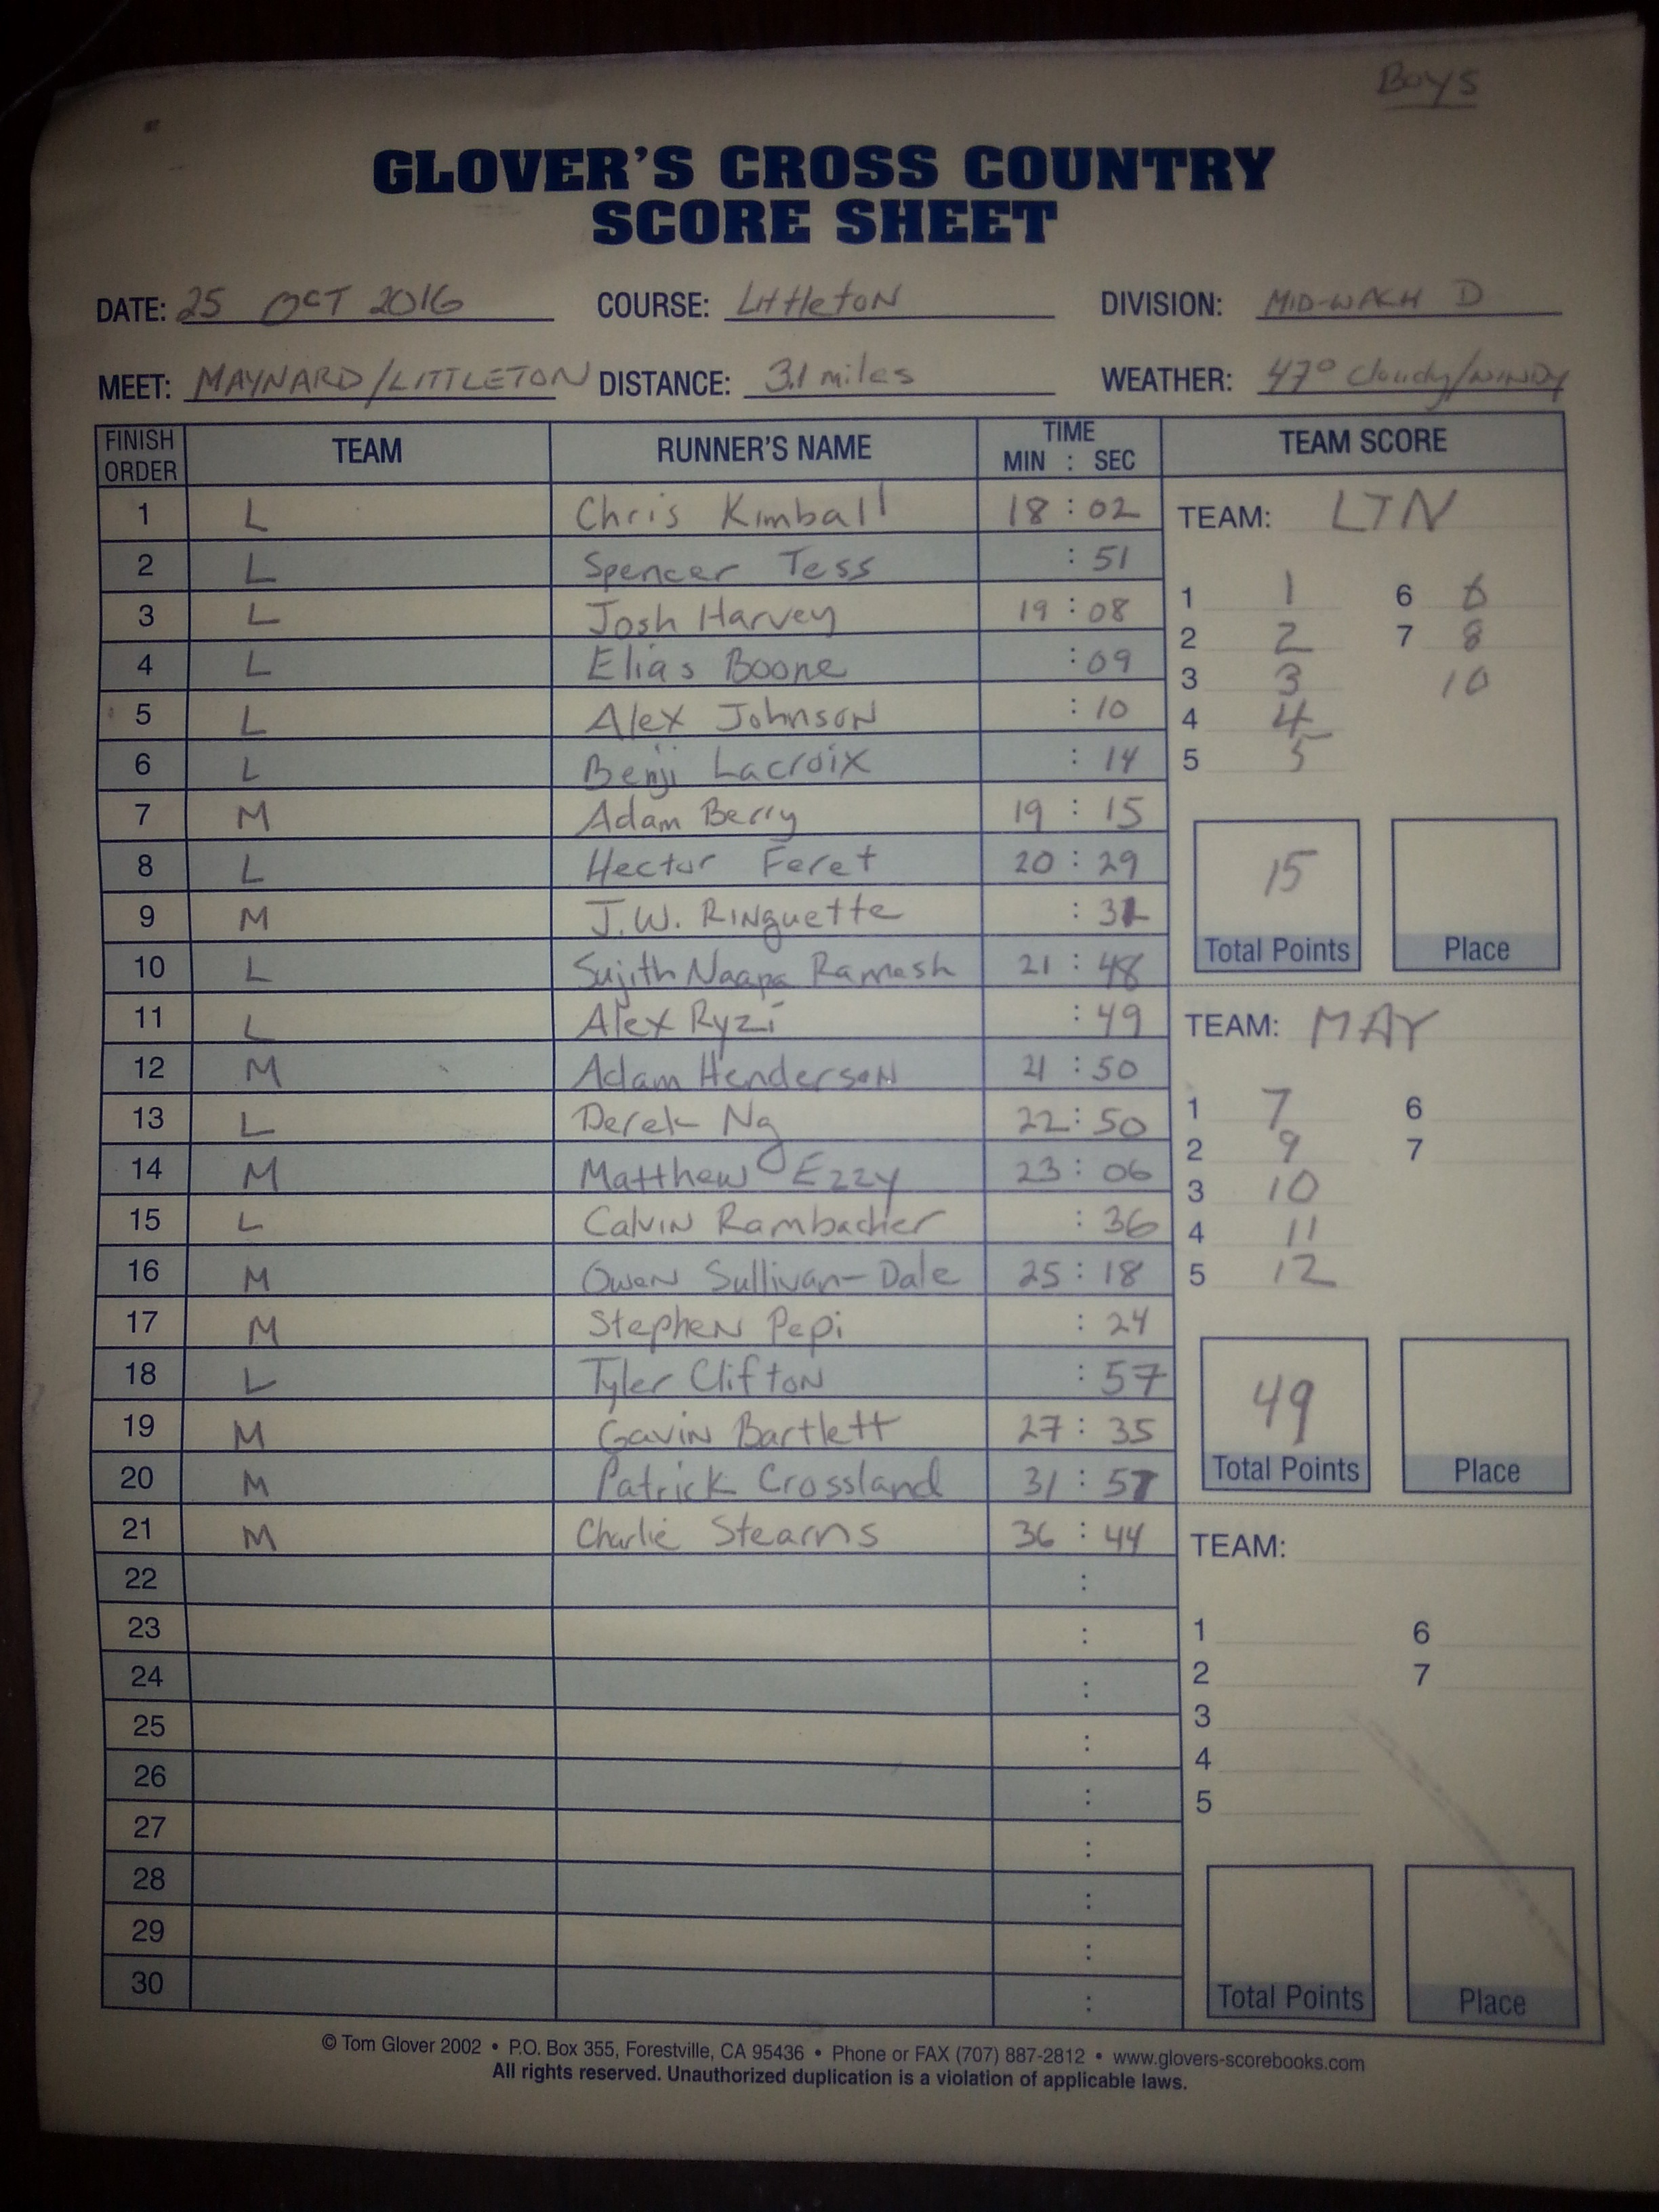 Boys
GLOVER'S CROSS COUNTRY
SCORE SHEET
DATE: 25 OCT 2016 COURSE: LittletoN DIVISION: MID-WACH D
MEET: MAYNARD/LITTLETON DISTANCE: 3.1 miles WEATHER: 47° Cloudy/WINDY
FINISH ORDER TEAM RUNNER'S NAME TIME MIN : SEC TEAM SCORE
1 L Chris Kimball 18 : 02
2 L Spencer Tess : 51
3 L Josh Harvey 19 : 08
4 L Elias Boone : 09
5 L Alex Johnson : 10
6 L Benji Lacroix : 14
7 M Adam Berry 19 : 15
8 L Hector Feret 20 : 29
9 M J.W. Ringuette :
10 L Sujith Naapa Ramesh 21 : 48
11 L Alex Ryzi : 49
12 M Adam Henderson 21 : 50
13 L Derek Ng 22 : 50
14 M Matthew Ezzy 23 : 06
15 L Calvin Rambacher : 36
16 M Owen Sullivan-Dale 25 : 18
17 M Stephen Pepi : 24
18 L Tyler Clifton : 57
19 M Gavin Bartlett 27 : 35
20 M Patrick Crossland 31 : 57
21 M Charlie Stearns 36 : 44
22 :
23 :
24 :
25 :
26 :
27 :
28 :
29 :
30 :
TEAM: LTN
1 1 6 6
2 2 7 8
3 3 10
4 4
5 5
15
Total Points Place
TEAM: MAY
1 7 6
2 9 7
3 10
4 11
5 12
49
Total Points Place
TEAM:
1 6
2 7
3
4
5
Total Points Place
© Tom Glover 2002 • P.O. Box 355, Forestville, CA 95436 • Phone or FAX (707) 887-2812 • www.glovers-scorebooks.com
All rights reserved. Unauthorized duplication is a violation of applicable laws.